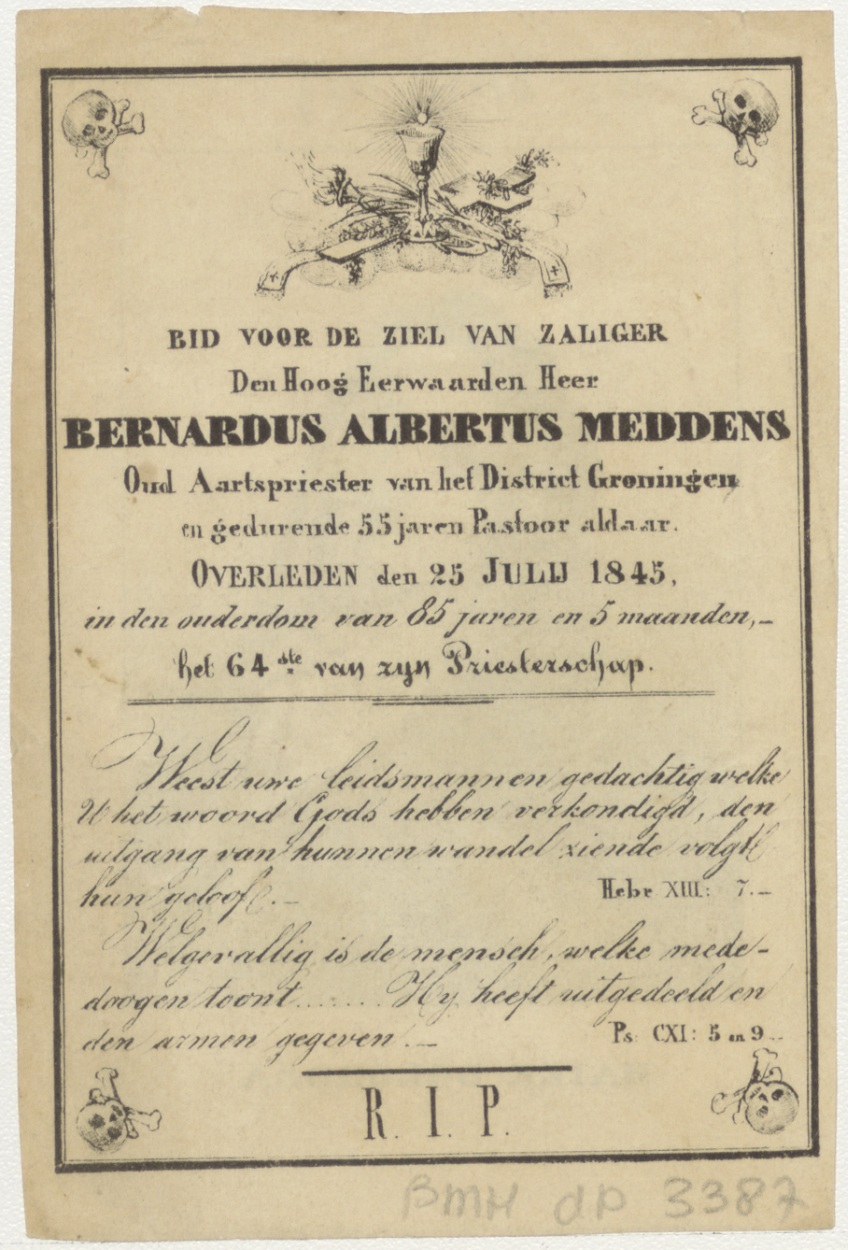 BID VOOR DE ZIEL VAN ZALIGER
Den Hoog Eerwaarden Heer
BERNARDUS ALBERTUS MEDDENS
Oud Aartspriester van het District Groningen
en gedurende 55 jaren Pastoor aldaar.
OVERLEDEN den 25 JULIJ 1845,
in den ouderdom van 85 jaren en 5 maanden,–
het 64ste van zyn Priesterschap.
Weest uwe leidsmannen gedachtig welke
U het woord Gods hebben verkondigd, den
uitgang van hunnen wandel ziende volgt
hun geloof.–
Hebr XIII: 7.–
Welgevallig is de mensch, welke mede-
doogen toont....... Hy heeft uitgedeeld en
den armen gegeven.–
Ps: CXI: 5 en 9..
R. I. P.
BMH dp 3387